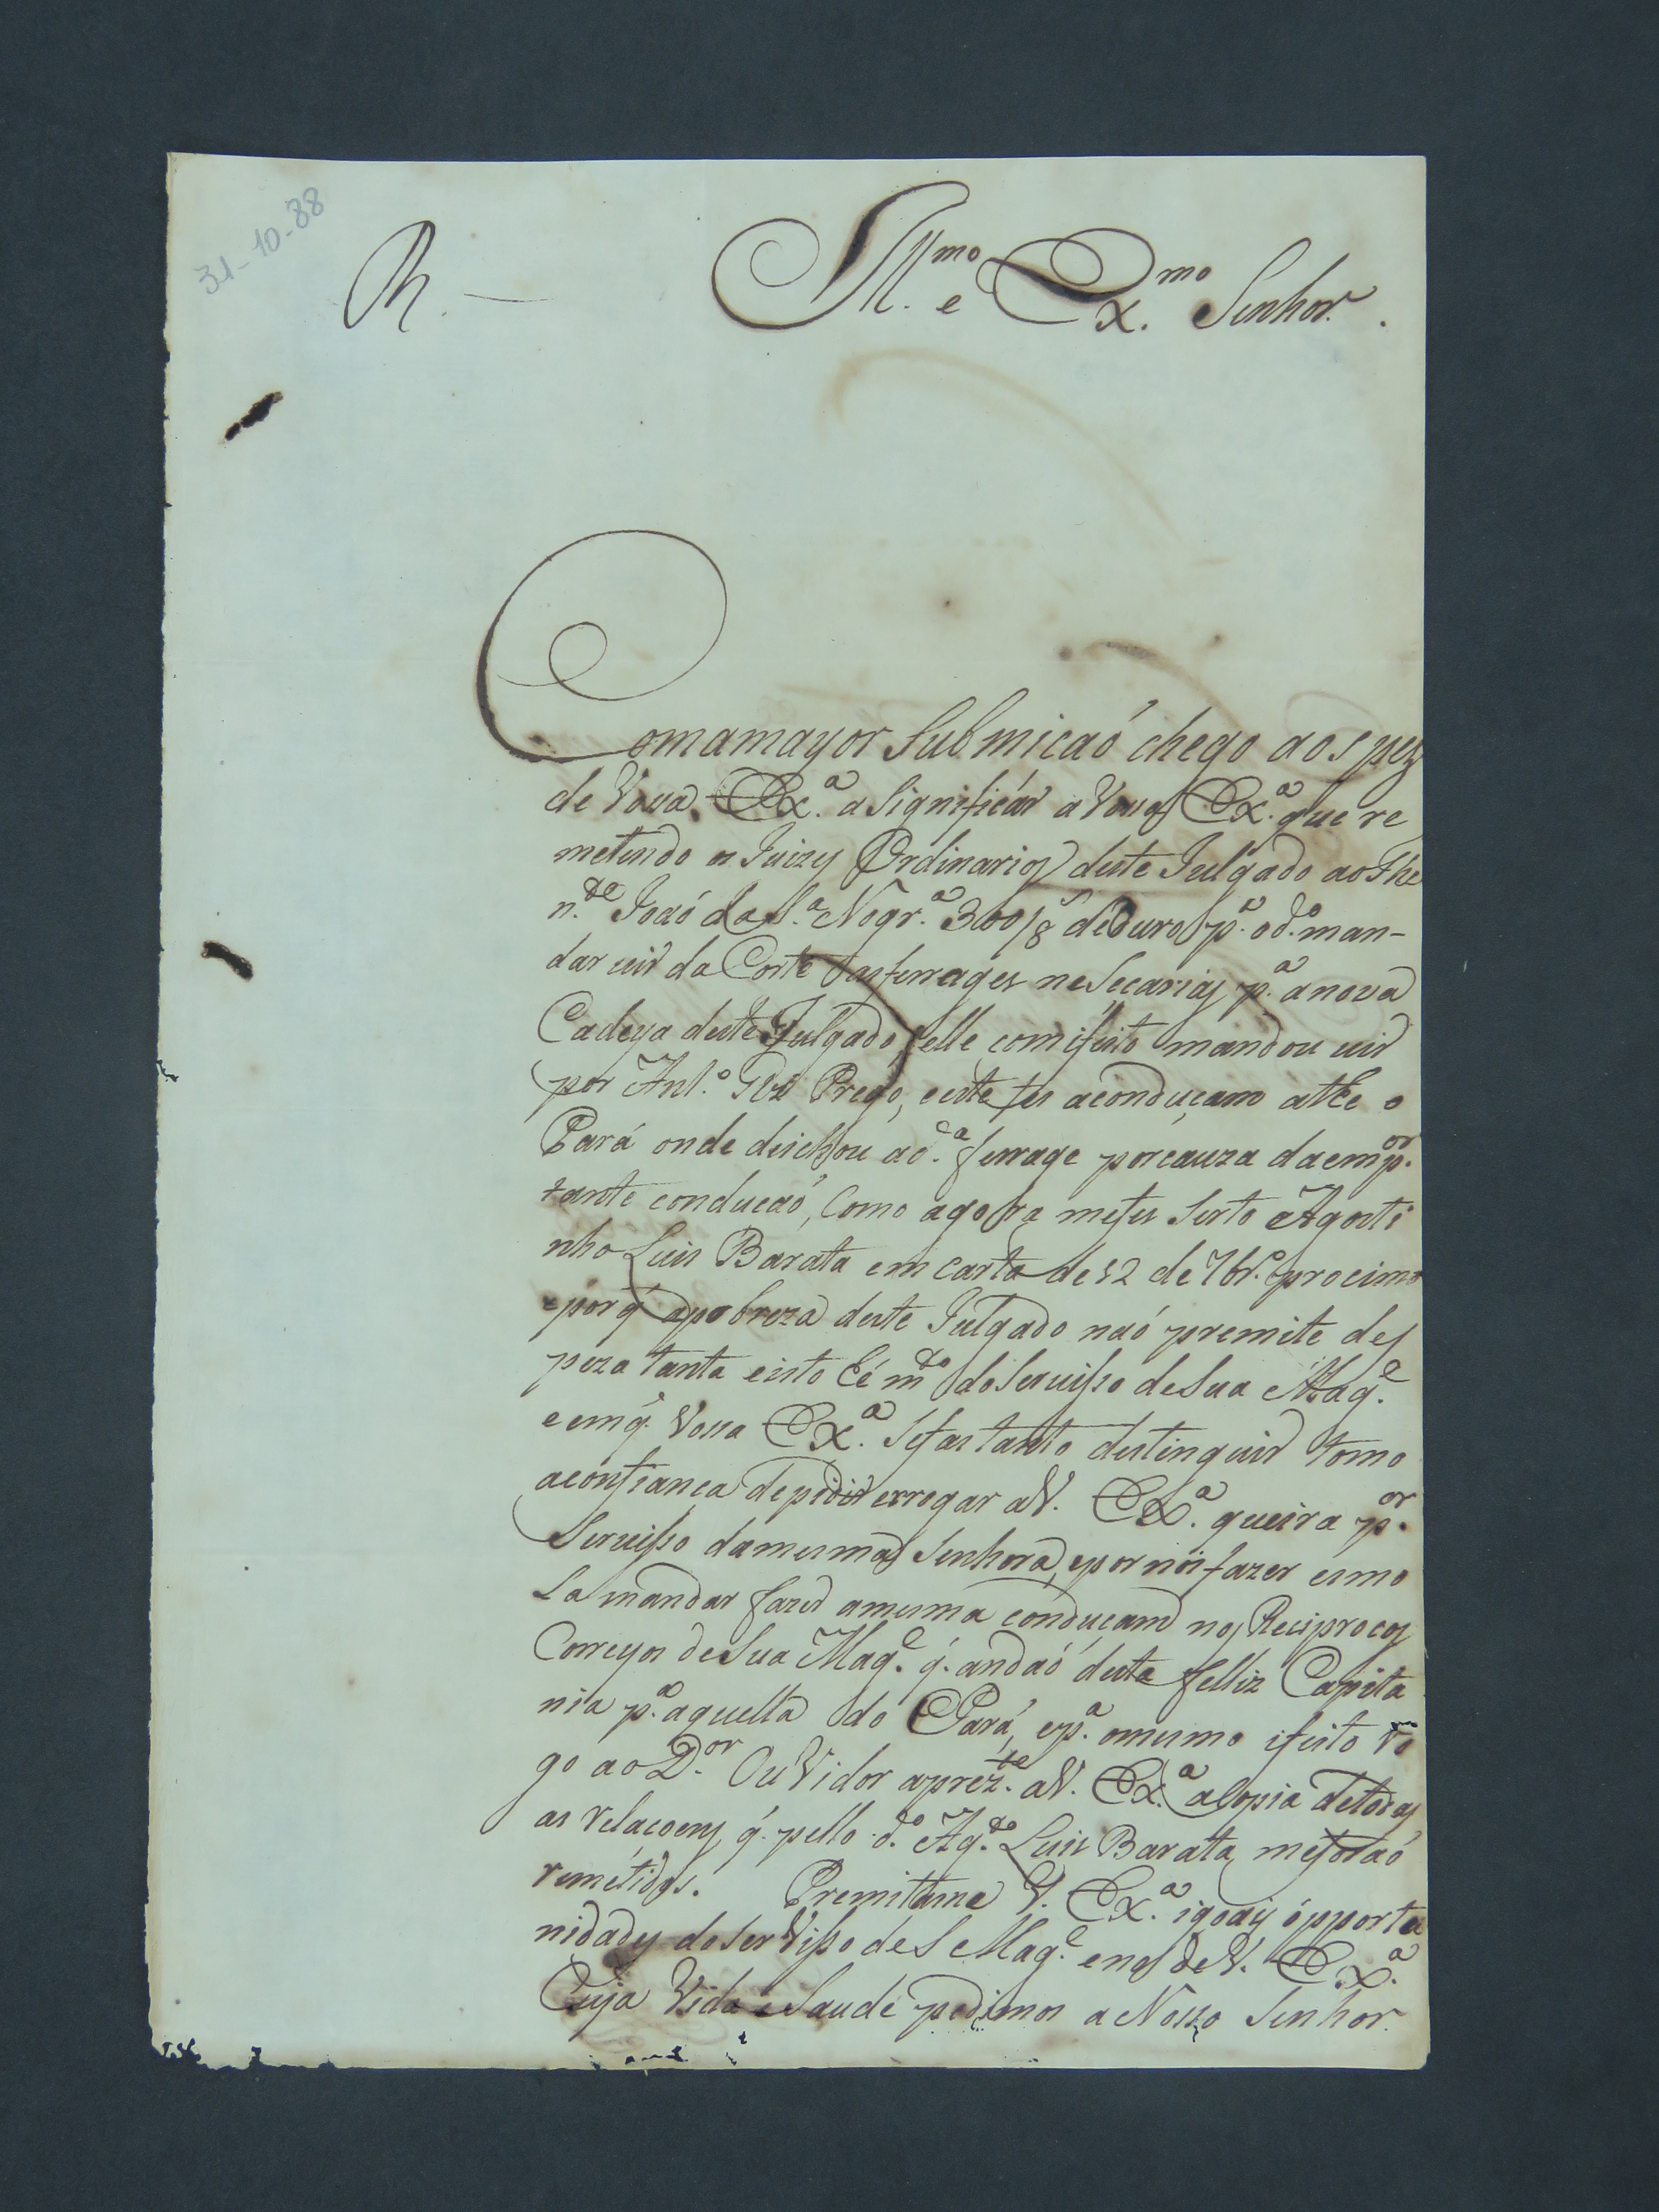 31-10-88
R. — Ill.mo e Ex.mo Senhor.
Comamayor Submicaó chego aos pez
de Vossa Ex.a a Significár a Vossa Ex.a que re
metendo os Juizes Ordinarios deste Julgado ao The
n.te Joaó da S.a Nogr.a 300/8 de Ouro p.a o d.o man-
dar vir da Corte as ferrages neSecarias p.a a nova
Cadeya deste Julgado, elle com ifeito mandou vir
por Ant.o Prego, e este fes aconduçam athe o
Pará onde deichou a d.a ferrage por cauza da emp.or
tante conducaó, Como agora mefes Serto Agosti
nho Luis Barata em carta de 12 de 7br.o procimo
e porq̃ apobreza deste Julgado naó premite des
peza tanta e isto hé m.to do Servisso de Sua Mag.e
e em q̃ Vossa Ex.a Sefas tanto destinguir tomo
aconfianca depidir errogar aV. Ex.a queira p.or
Servisso damesma Senhora, e por nós fazer esmo
La mandar fazer amesma conducam nos Reciprocos
Correyos de Sua Mag.e q̃ andaó desta felliz Capita
nia p.a aquella do Pará, e p.a omesmo ifeito ro
go ao D.or OuVidor aprez.te aV. Ex.a aCopia detodas
as relacoens q̃ pello d.o Ag.to Luis Barata me foraó
remetidas. Premitame V. Ex.a igoais ópportu
nidades do SerVisso de S Mag.e e nas de V. Ex.a
Cuja Vida e Saude pedimos a Nosso Senhor